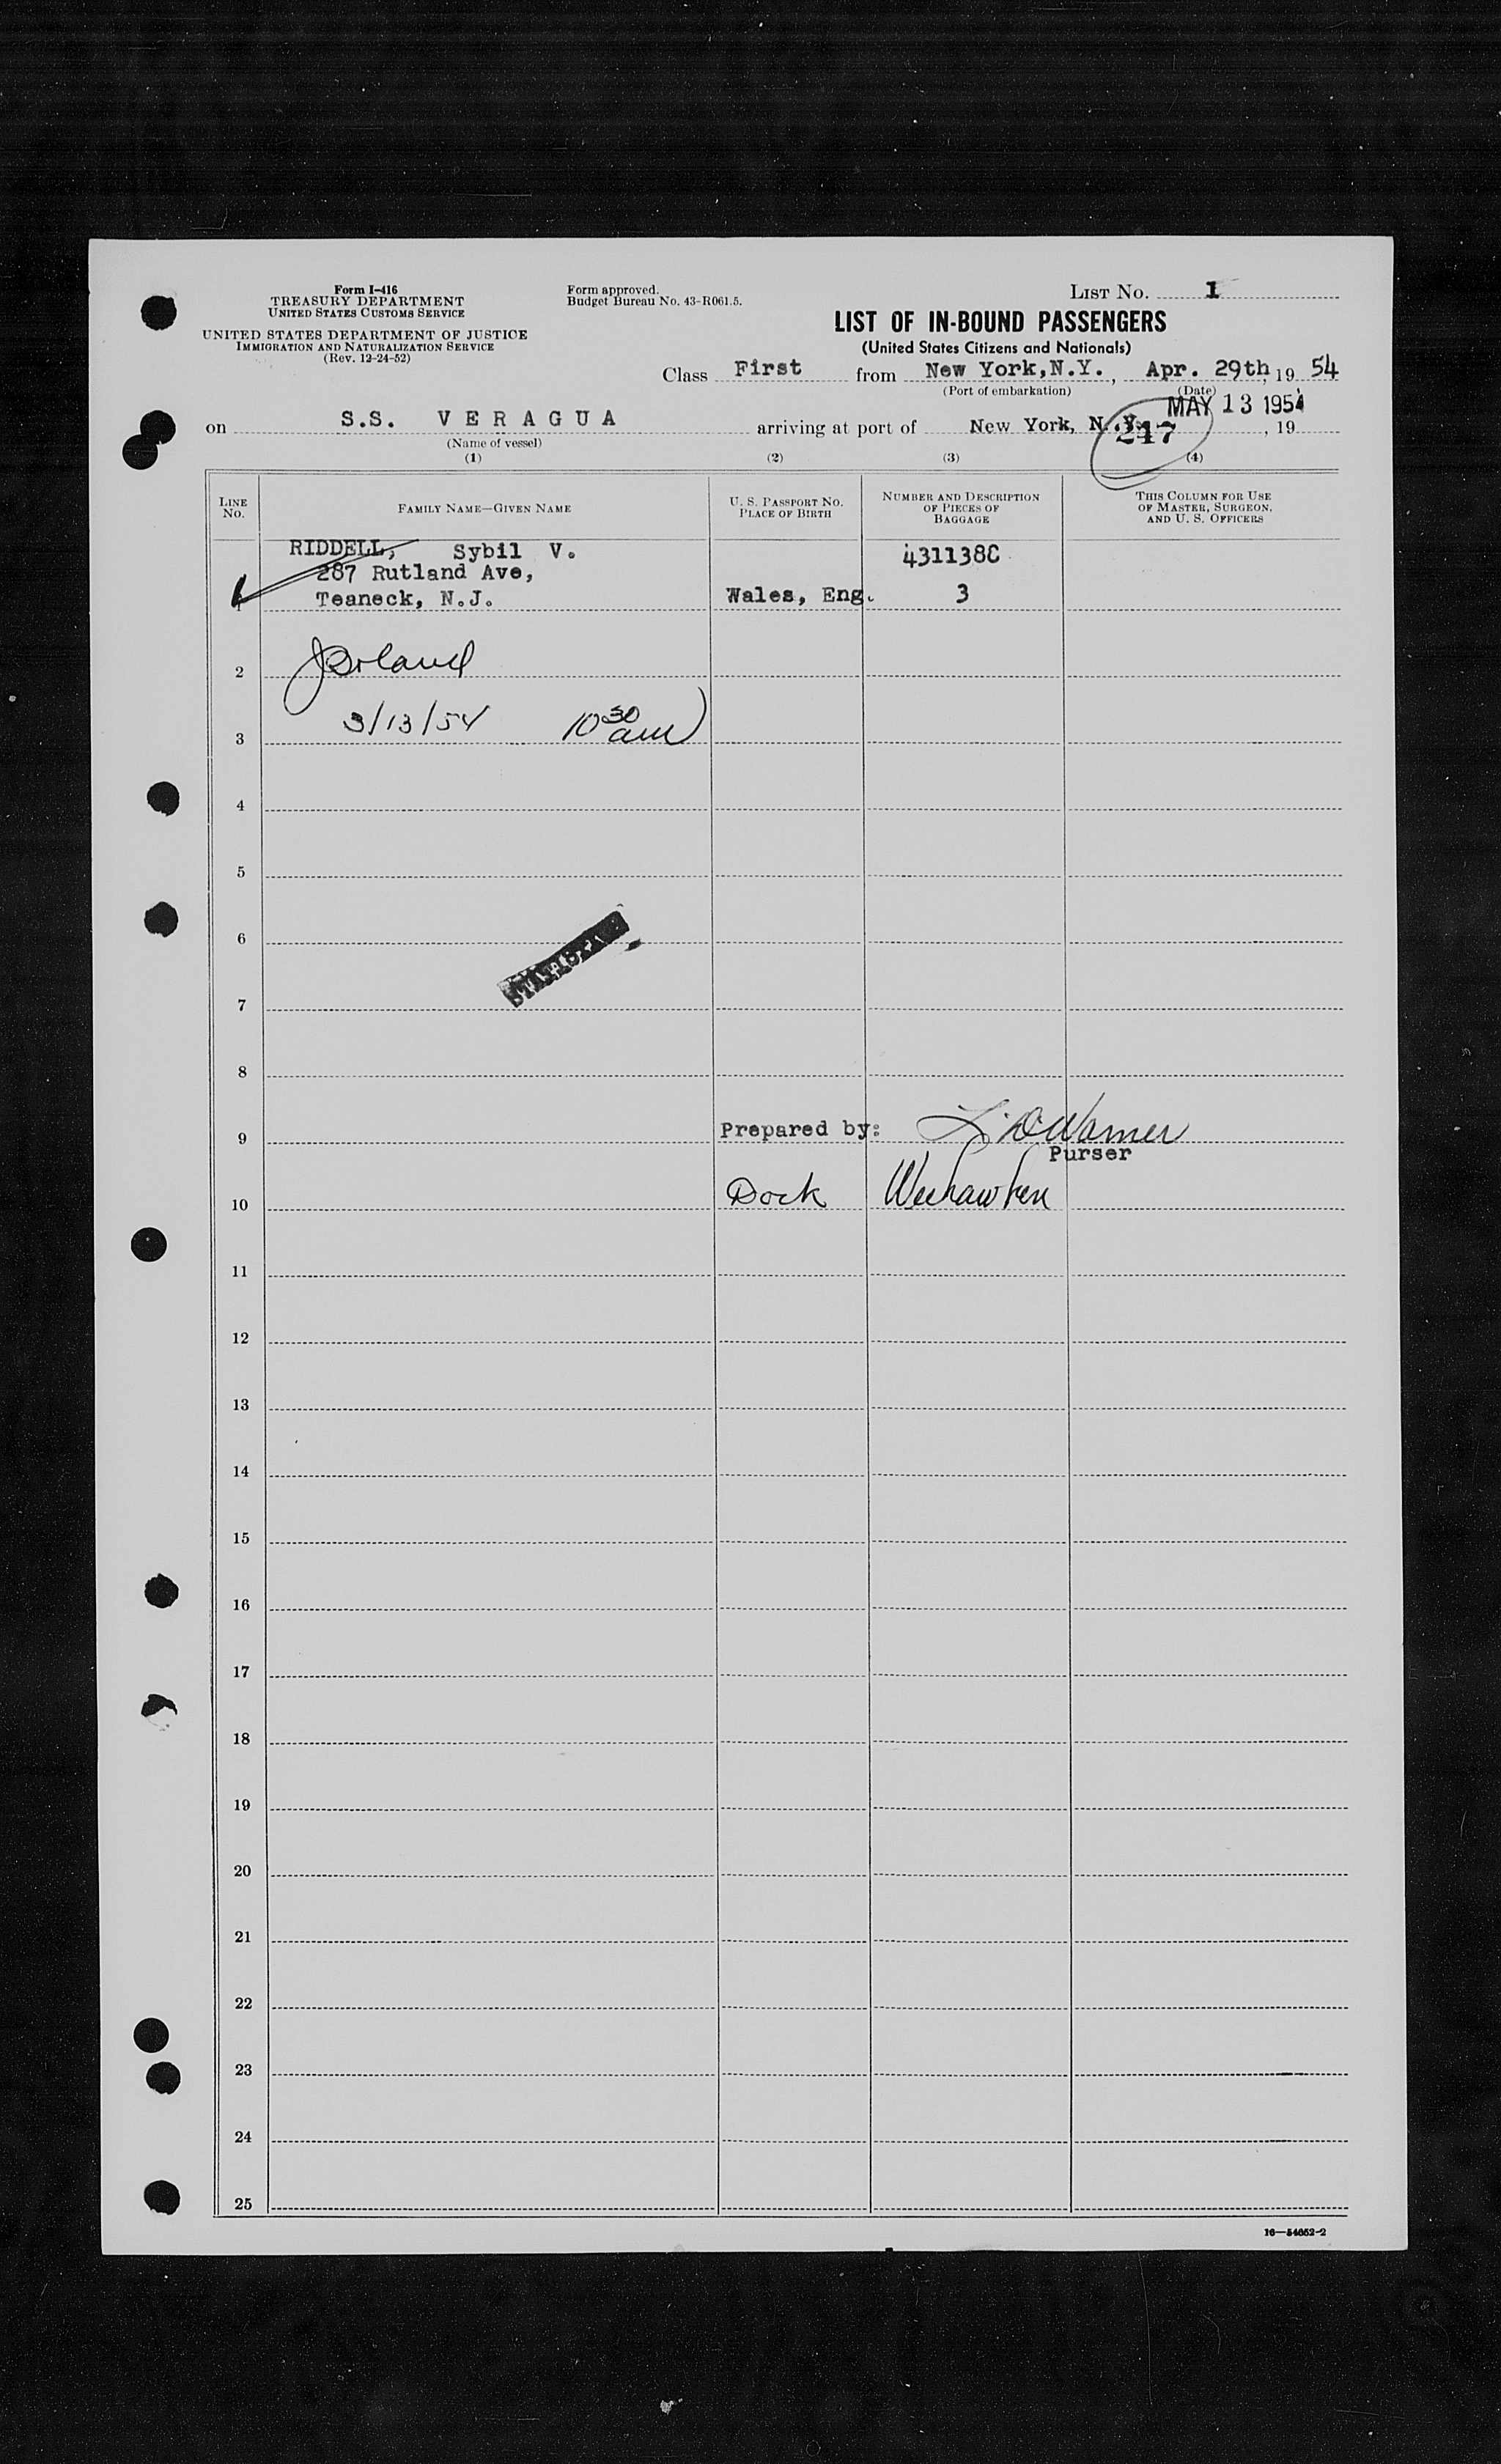 Form I-416
TREASURY DEPARTMENT
UNITED STATES CUSTOMS SERVICE
UNITED STATES DEPARTMENT OF JUSTICE
IMMIGRATION AND NATURALIZATION SERVICE
(Rev. 12-24-52)
Form approved.
Budget Bureau No. 43-R061.5.
LIST No. 1
LIST OF IN-BOUND PASSENGERS
(United States Citizens and Nationals)
Class First from New York, N.Y., Apr. 29th, 19 54
(Port of embarkation) (Date)
MAY 13 1954
on S.S. VERAGUA arriving at port of New York, N.Y. 247, 19
(Name of vessel)
(1) (2) (3) (4)
LINE No.
FAMILY NAME—GIVEN NAME
U. S. PASSPORT NO.
PLACE OF BIRTH
NUMBER AND DESCRIPTION
OF PIECES OF
BAGGAGE
THIS COLUMN FOR USE
OF MASTER, SURGEON,
AND U. S. OFFICERS
RIDDELL, Sybil V. 431138C
287 Rutland Ave,
1 Teaneck, N.J. Wales, Eng. 3
2
3 3/13/54 10 30 am
4
5
6
7
8
9 Prepared by: Warner
Purser
10 Dock Weehawken
11
12
13
14
15
16
17
18
19
20
21
22
23
24
25
16—54652-2